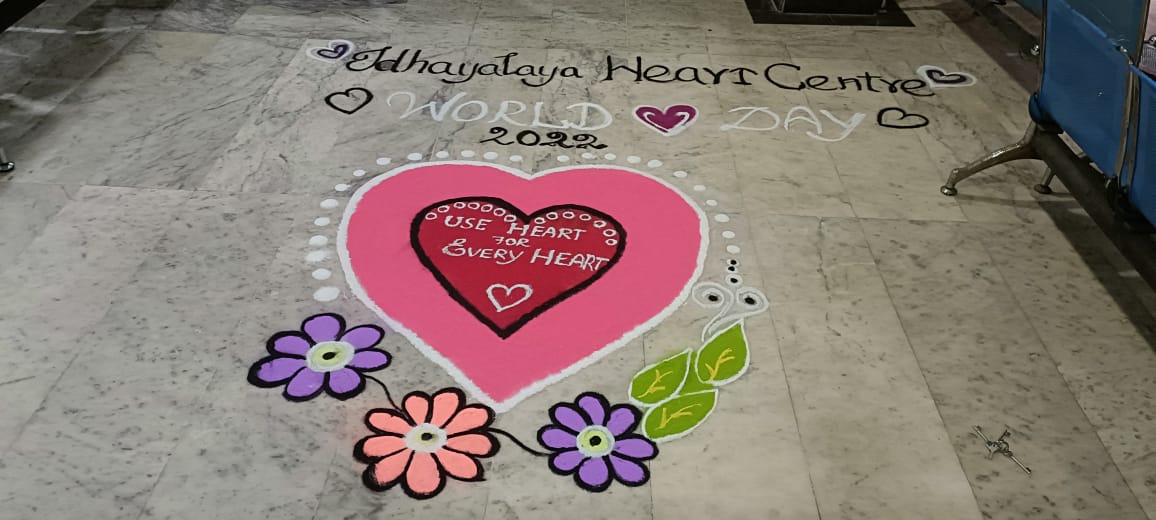 Idhayalaya Heart Centre
WORLD DAY
2022
USE HEART
FOR
EVERY HEART